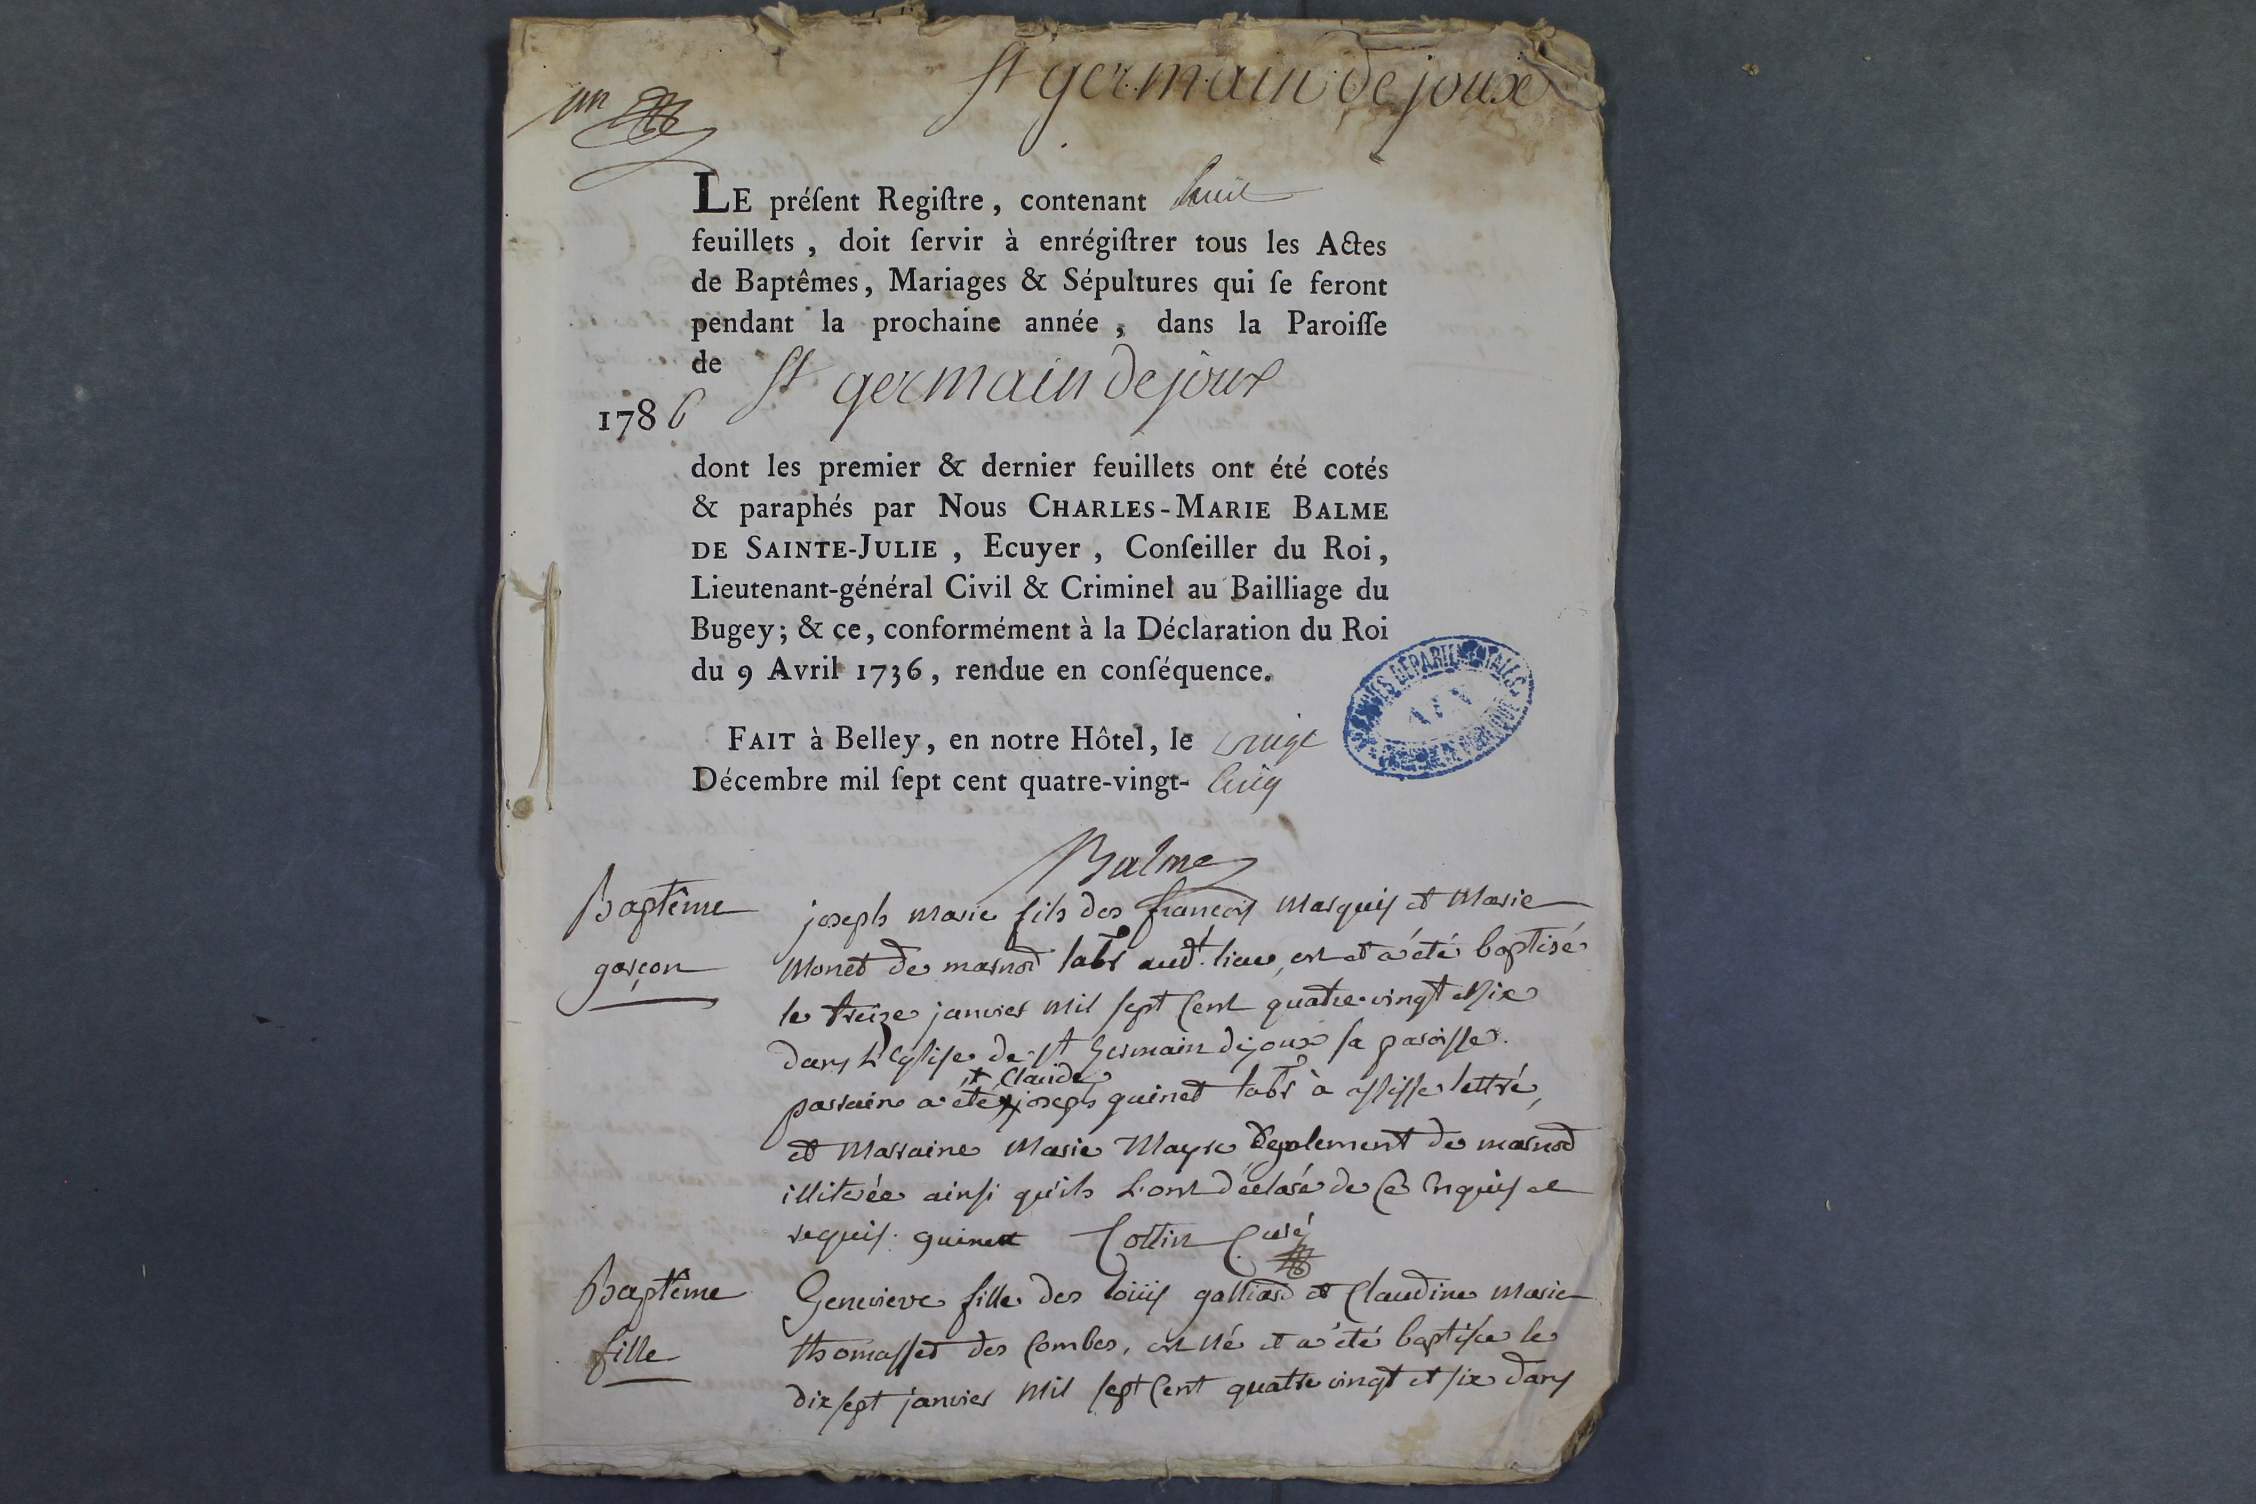 St germain de joux
un
LE préſent Regiſtre, contenant huit
feuillets, doit ſervir à enrégiſtrer tous les Actes
de Baptêmes, Mariages & Sépultures qui ſe feront
pendant la prochaine année, dans la Paroiſſe
de St germain de joux
1786
dont les premier & dernier feuillets ont été cotés
& paraphés par Nous CHARLES-MARIE BALME
DE SAINTE-JULIE, Ecuyer, Conſeiller du Roi,
Lieutenant-général Civil & Criminel au Bailliage du
Bugey; & ce, conformément à la Déclaration du Roi
du 9 Avril 1736, rendue en conſéquence.
ARCHIVES DÉPARTEMENTALES
AIN
FAIT à Belley, en notre Hôtel, le
Décembre mil ſept cent quatre-vingt-cinq
Balme
Baptême
garçon
joseph marie fils des françois Marquis et Marie
Monet de marnod labr audt lieu, est et a été baptisé
le treize janvier mil sept Cent quatre-vingt et six
dans L'Eglise de St Germain dejoux sa paroisse.
parrain a été st Claude joseph guinet labr à assisse lettré,
et Marraine Marie Mayre également de marnod
illiterée ainsi qu'ils L'ont déclaré de Ce Enquis et
requis. guinet Collin Curé
Baptême
fille
Genevieve fille des loüis galliard et Claudine Marie
thomasset des Combes, est né et a été baptisée le
dix sept janvier mil sept Cent quatre vingt et six dans